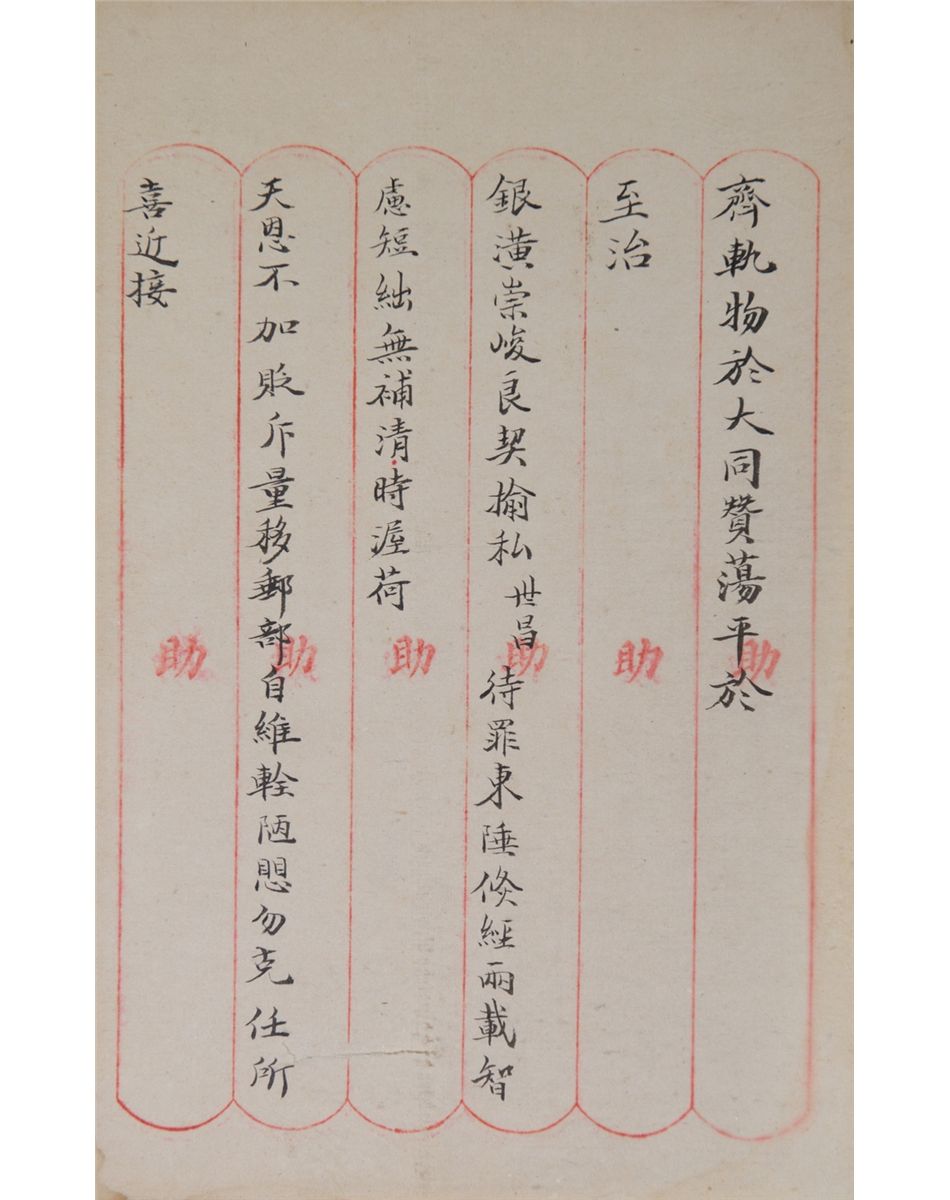 齊軌物於大同贊蕩平於
至治
銀潢崇峻良契揄私世昌待罪東陲倏經兩載智
慮短絀無補清時渥荷
天恩不加貶斥量移郵部自維輇陋愳勿克任所
喜近接
助 助 助 助 助 助